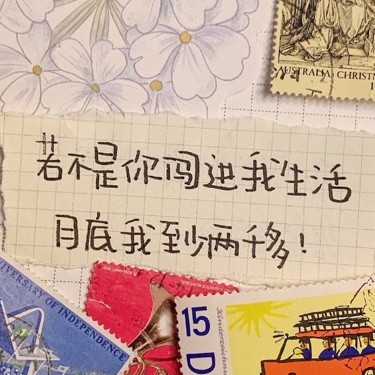 AUSTRALIA CHRISTM
若不是你闯进我生活
月底我到少两千多！
VERSARY OF INDEPENDENCE
15
D